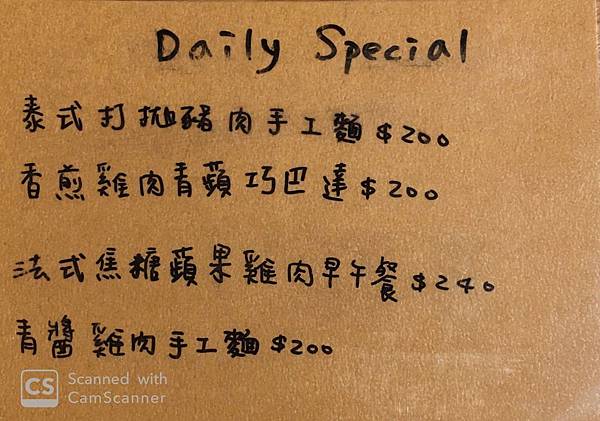 Daily Special
泰式打拋豬肉手工麵 $200
香煎雞肉青蘋巧巴達 $200
法式焦糖蘋果雞肉早午餐 $240
青醬雞肉手工麵 $200
CS Scanned with
CamScanner